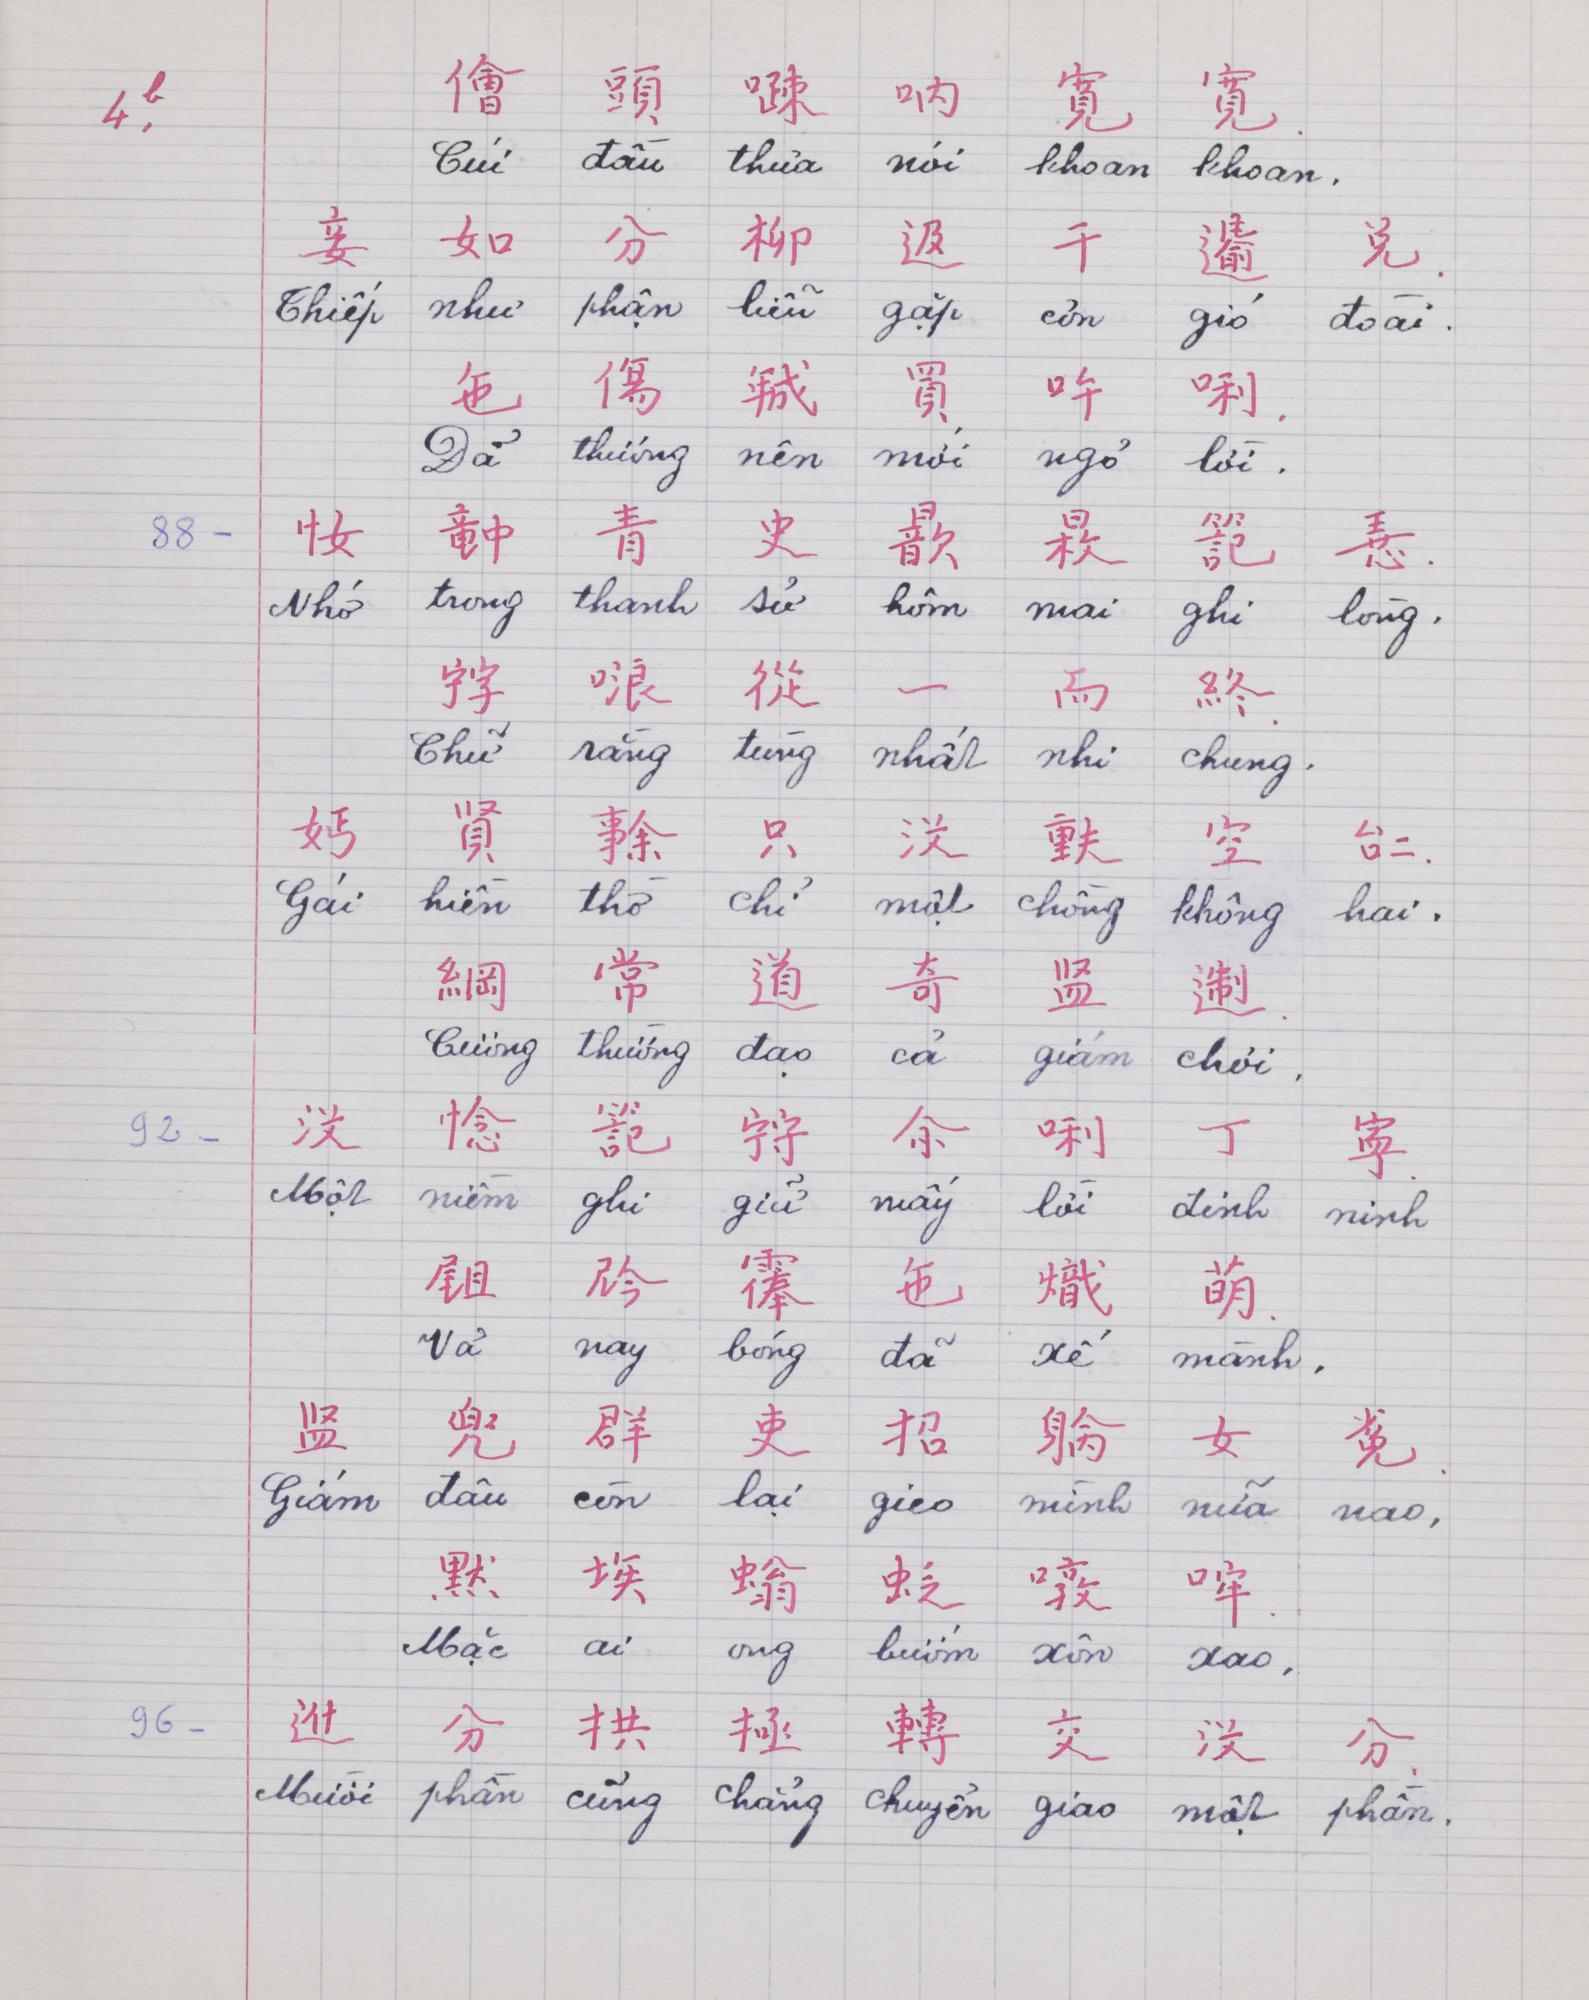 4b,
儈 頭 𠽖 吶 寬 寬.
Cúi đầu thưa nói khoan khoan.
妾 如 分 柳 返 干 𨔍 兌.
Thiếp như phận liễu gặp cơn gió đoài.
㐌 傷 𢧚 買 吘 唎.
Đã thương nên mới ngỏ lời.
88- 𢖵 𥪝 青 史 歆 𣈕 䇵 𢚸.
Nhớ trong thanh sử hôm mai ghi lòng.
𡨸 哴 從 一 而 終.
Chữ rằng tùng nhất nhi chung.
𡛔 賢 蜍 只 沒 𫯳 空 𠄩.
Gái hiền thờ chỉ một chồng không hai.
綱 常 道 奇 监 制.
Cương thường đạo cả giám chơi.
92- 沒 念 䇵 𡨹 余 唎 丁 寧.
Một niềm ghi giữ mấy lời đinh ninh
𡲤 𫢩 䨦 㐌 熾 萌.
Vả nay bóng đã xế mành.
监 兜 群 吏 招 𨉟 女 𱜢.
Giám đâu còn lại gieo mình nữa nao,
默 埃 螉 𧊉 噋 㖕.
Mặc ai ong bướm xôn xao,
96- 𨒒 分 拱 拯 轉 交 沒 分.
Mười phần cũng chẳng chuyển giao một phần.